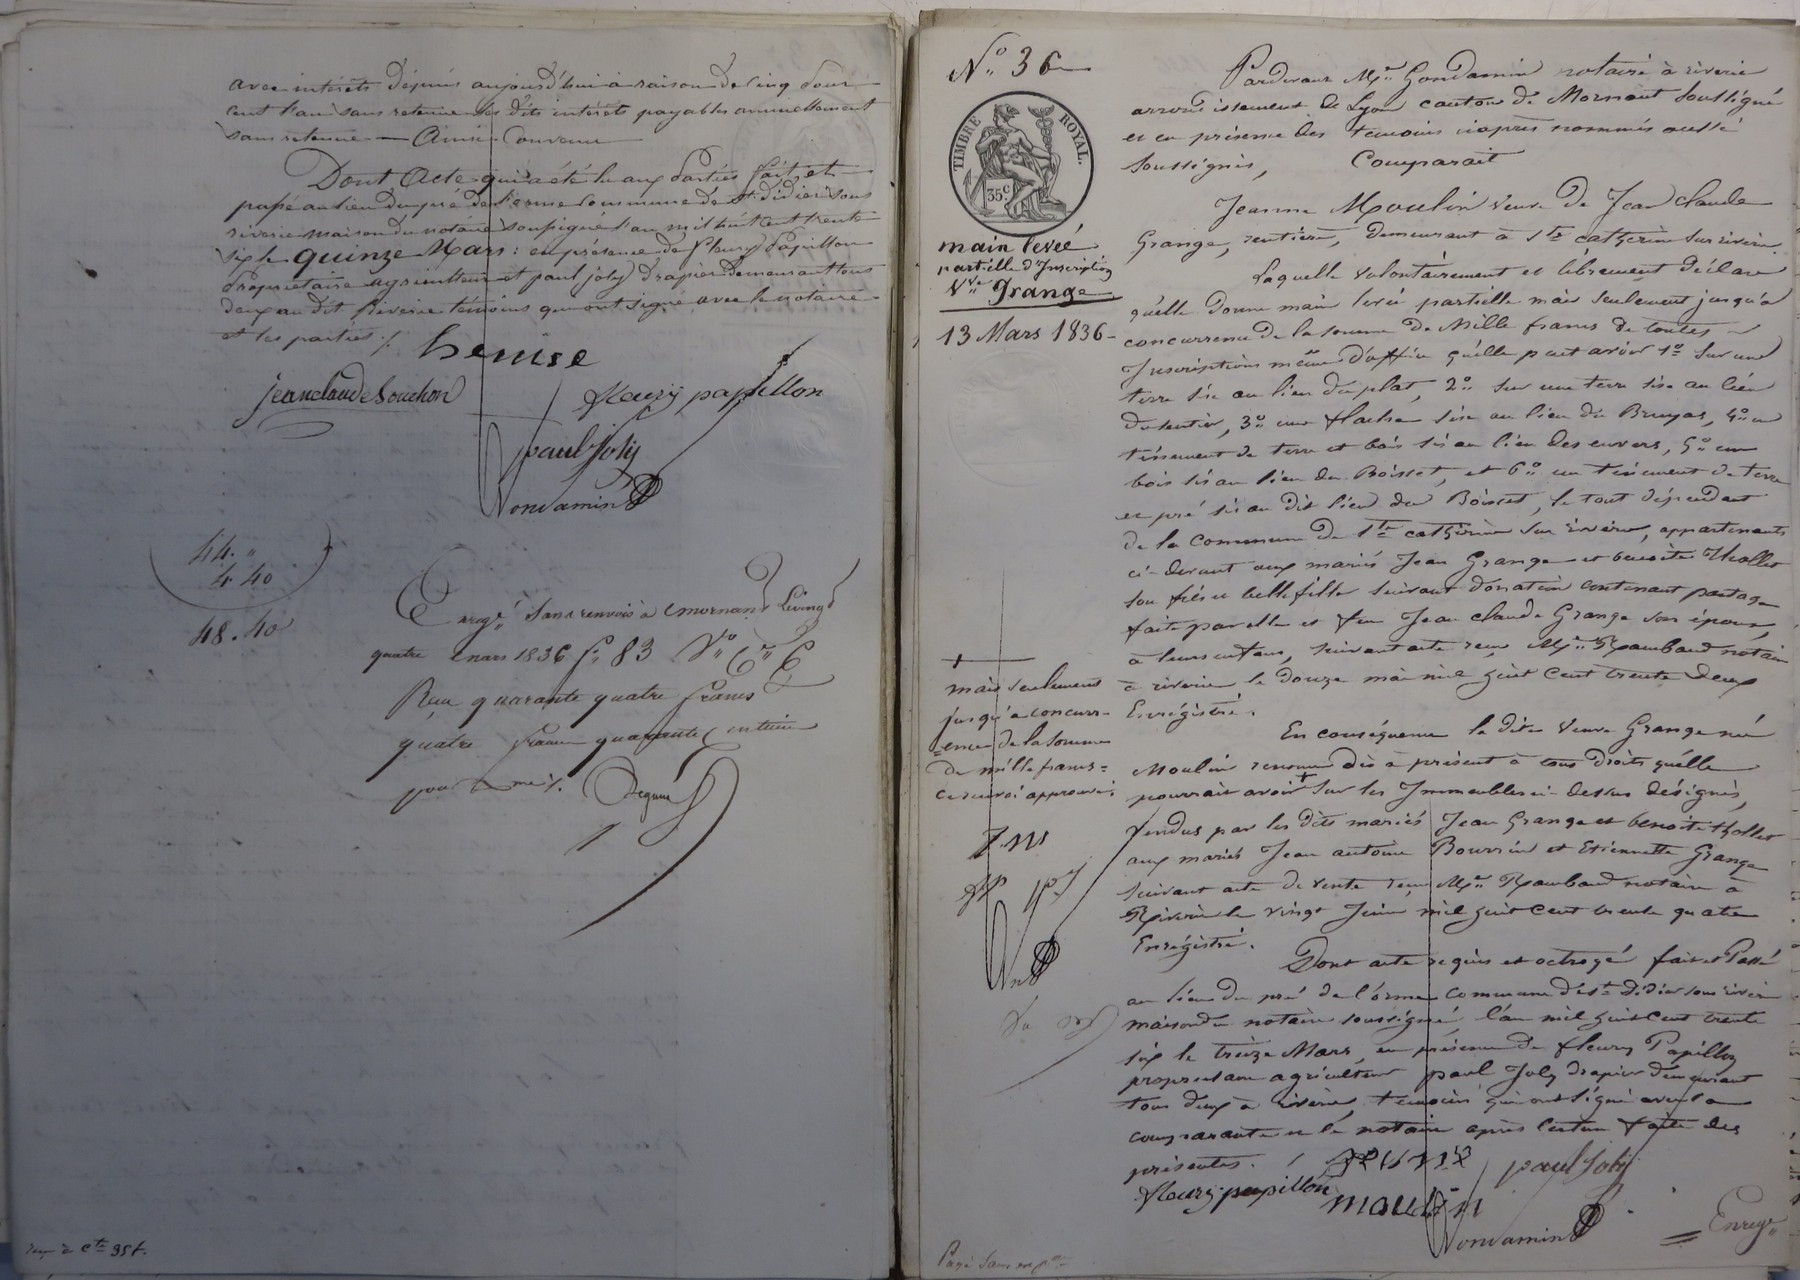 avec intérêts depuis aujourd'hui à raison de cinq pour
cent l'an sans retenue les dits intérêts payables annuellement
sans retenue — Ainsi Convenu
Dont Acte qui a été lu aux Parties fait et
passé au lieu du pré de l'orme Commune de St. didier sous
riverie maison du notaire soussigné l'an mil huit cent trente
six le quinze Mars : en présence de fleury Papillon
Propriétaire agriculteur et paul joly drapier demeurant tous
deux au dit Riverie témoins qui ont signé avec le notaire
et les parties ./.
jean claude Souchon
fleury papillon
paul Joly
Condamin
44. "
4. 40
48. 40
Enregé. Sans renvois à Mornant Le vingt
quatre mars 1836 fo. 83 Vo. Ce. 6
Reçu quarante quatre francs
quatre francs quarante centimes
pour le me./.
No. 36
TIMBRE ROYAL.
35 c
main levée
partielle d'Inscription
Vve. Grange
13 Mars 1836
Pardevant Me. Condamin notaire à riverie
arrondissement de Lyon canton de Mornant soussigné
et en présence des temoins ciaprès nommés aussi
soussignés, Comparait
Jeanne Moulin veuve de Jean claude
Grange, rentière, demeurant à Ste catherine sur riverie
Laquelle volontairement et librement déclare
qu'elle donne main levée partielle mais seulement jusqu'à
concurrence de la somme de Mille francs de toutes
Inscriptions même d'office qu'elle peut avoir 1o. sur une
terre sise au lieu du plat, 2o. sur une terre sise au lieu
du sentier, 3o. une flache sise au lieu du Bruyas, 4o. un
tènement de terre et bois sis au lieu des envers, 5o. un
bois sis au lieu du Boisset, et 6o. un tènement de terre
et pré sis au dit lieu du Boisset, le tout dépendant
de la commune de Ste catherine sur riverie, appartenants
ci-devant aux mariés Jean Grange et benoite Thollet
son fils et belle fille suivant donation contenant partage
faite par elle et feu Jean claude Grange son époux,
à leurs enfans, suivant acte reçu Me. Rambaud notaire
à riverie le douze mai mil huit cent trente deux
Enrégistré.
En conséquence la dite veuve Grange née
Moulin renonce dès à présent à tous droits qu'elle
pourrait avoir + sur les Immeubles ci-dessus désignés,
vendus par les dits mariés Jean Grange et benoite thollet
aux mariés Jean antoine Bourrin et Etiennette Grange
suivant acte de vente reçu Me. Rambaud notaire à
Riverie le vingt Juin mil huit cent trente quatre
Enrégistré.
+
mais seulement
jusqu'à concurr-
-ence de la somme
de mille francs =
ce renvoi approuvé.
J. m
fP pJ
Dont acte requis et octroyé fait et Passé
au lieu du pré de l'orme commune de St. didier sous riverie
maison du notaire soussigné, l'an mil huit cent trente
six le treize Mars, en présence de fleury Papillon
propriétaire agriculteur paul Joly drapier demeurant
tous deux à riverie, temoins qui ont signé avec la
comparante et le notaire après lecture faite des
présentes.
fleury papillon
moulin
paul Joly
Condamin
Enregé.